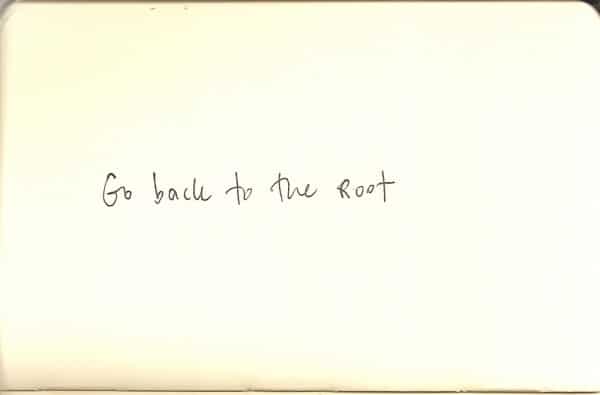 Go back to the Root